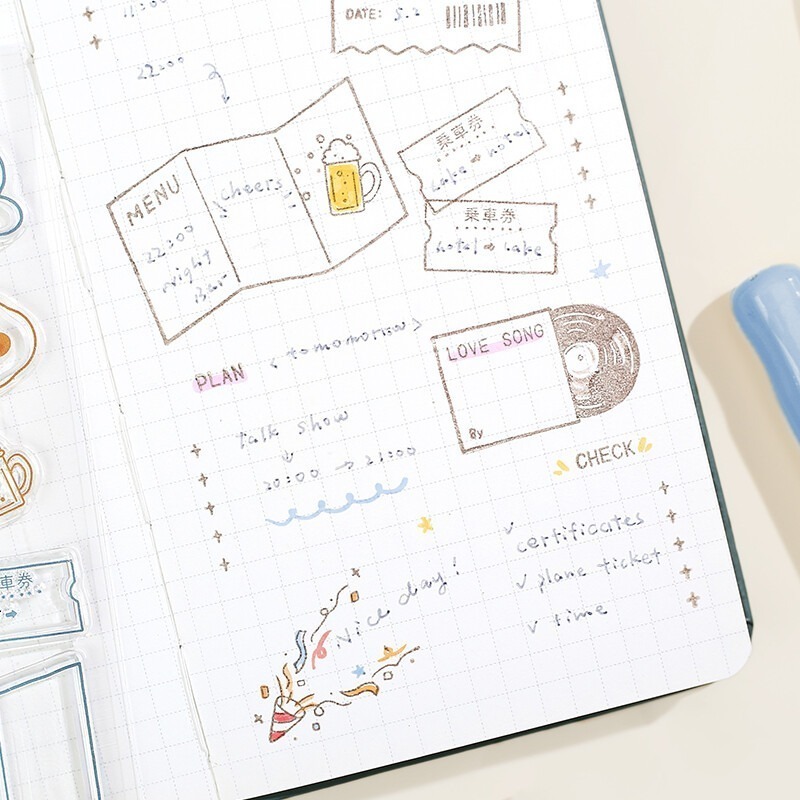 11:00
DATE: 5.2
22:00
MENU
22:00
night
Bar
cheers
乗車券
Lake ⇒ hotel
乗車券
hotel ⇒ Lake
PLAN
< tomomorrow >
talk show
20:00 → 21:00
LOVE SONG
By
CHECK
✓ certificates
✓ plane ticket
✓ time
Nice day!
車券